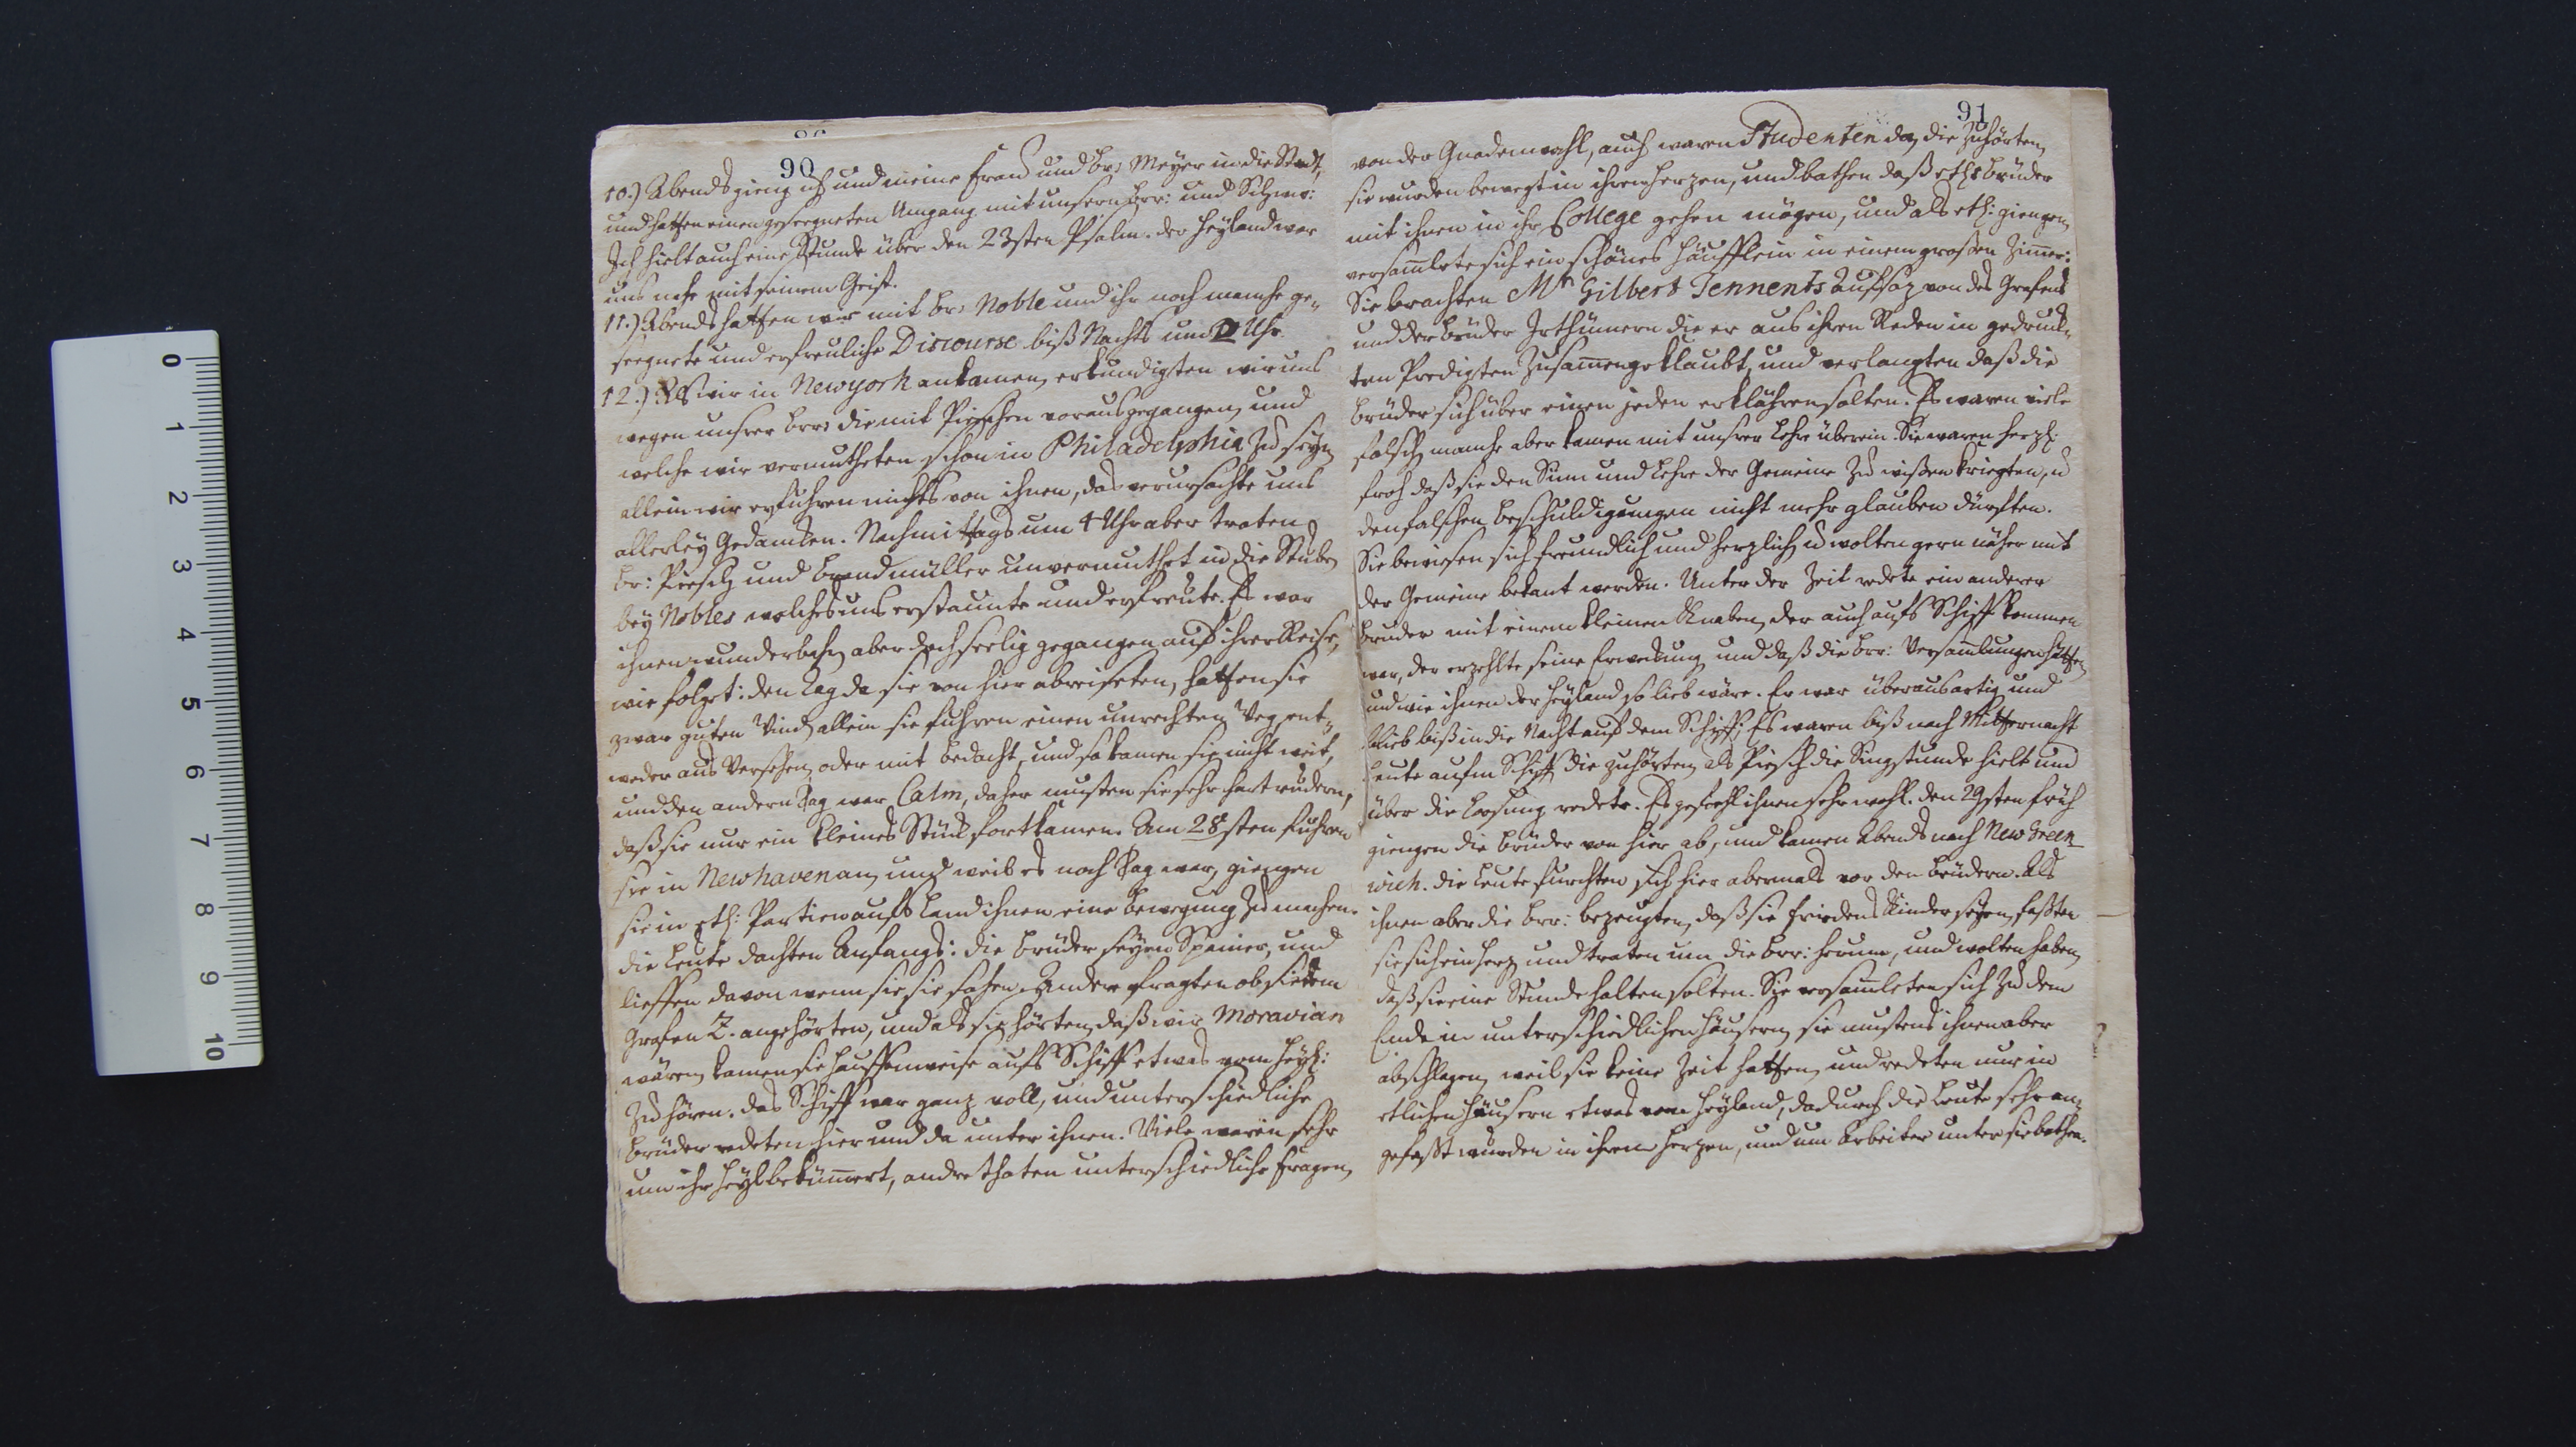 90
10.) Abends gieng ich und meine Frau und Br: Meyer in die Stadt,
und hatten einen geseegneten Umgang mit unsern Brr: und Schwr:
Ich hielt auch eine Stunde über den 23sten Psalm. der Heyland war
uns nahe mit seinem Geist.
11.) Abends hatten wir mit Br: Noble und ihr noch manche ge-
seegnete und erfreuliche Discourse biß Nachts um Uhr.
12.) Als wir in Newyork ankamen, erkundigten wir uns
wegen unsrer Brr: die mit Pieschen vorausgegangen, und
welche wir vermutheten schon in Philadelphia zu seyn
allein wir erfuhren nichts von ihnen, das verursachte uns
allerley Gedancken. Nachmittags um 4 Uhr aber traten
Br: Piesch und Brandmüller unvermuthet in die Stube
bey Nobles welches uns erstaunte und erfreute. Es war
ihnen wunderbar, aber doch seelig gegangen auf ihrer Reise,
wie folget: den Tag da sie von hier abreiseten, hatten sie
zwar guten Wind, allein sie fuhren einen unrechten Weg ent-
weder aus Versehen oder mit bedacht, und so kamen sie nicht weit,
und den andern Tag war Calm, daher musten sie sehr hart rudern,
daß sie nur ein kleines Stück fortkamen. Am 28sten fuhren
sie in Newhaven an, und weil es noch Tag war, giengen
sie in etl: Partien aufs Land ihnen eine Bewegung zu machen.
die Leute dachten Anfangs: die Brüder seyen Spanier, und
lieffen davon wenn sie sie sahen. Andere fragten ob sie dem
Grafen Z. angehörten, und als sie hörten, daß wir Moravian
wären, kamen sie hauffenweise aufs Schiff etwas vom Heyl:
zu hören. das Schiff war ganz voll, und unterschiedliche
Brüder redeten hier und da unter ihnen. Viele waren sehr
um ihr Heyl bekümert, andre thaten unterschiedliche Fragen,
91
von der Gnadenwahl, auch waren Studenten da, die zuhörten,
sie wurden bewegt in ihren Herzen, und bathen daß etl: Brüder
mit ihnen in ihr College gehen mögen, und als etl: giengen,
versamlete sich ein schönes Häufflein in einem grossen Zimer:
Sie brachten Mr Gilbert Tennents Aufsaz von des Grafens
und der Brüder Irthümern die er aus ihren Reden in gedruck-
ten Predigten zusamengeklaubt, und verlangten daß die
Brüder sich über einen jeden erklähren solten. Es waren viele
falsch, manche aber kamen mit unsrer Lehre überein. Sie waren herzl:
froh daß sie den Sinn und Lehre der Gemeine zu wißen kriegten, u
den falschen Beschuldigungen nicht mehr glauben dürften.
Sie bewiesen sich freundlich und herzlich, u wolten gern näher mit
der Gemeine bekant werden. Unter der Zeit redete ein anderer
Bruder mit einem kleinen Knaben, der auch aufs Schiff kommen
war, der erzehlte seine Erweckung und daß die Brr: Versamlungen hätten
und wie ihnen der Heyland so lieb wäre. Er war überaus artig und
blieb biß in die Nacht auf dem Schiff; Es waren biß nach Mitternacht
Leute aufm Schiff die zuhörten, als Piesch die Singstunde hielt und
über die Loosung redete. Es gefiehl ihnen sehr wohl. den 29sten früh
giengen die Brüder von hier ab, und kamen Abends nach New Green-
wich. die Leute furchten sich hier abermals vor den Brüdern. Als
ihnen aber die Brr: bezeugten, daß sie Friedens Kinder seyen, faßten
sie sich ein Herz und traten um die Brr: herum, und wolten haben,
daß sie eine Stunde halten solten. Sie versamleten sich zu dem
Ende in unterschiedlichen Häusern, sie mustens ihnen aber
abschlagen, weil sie keine Zeit hatten, und redeten nur in
etlichen Häusern etwas vom Heyland, dadurch die Leute sehr an-
gefaßt wurden in ihren Herzen, und um Arbeiter unter sie bathen.
0
1
2
3
4
5
6
7
8
9
10